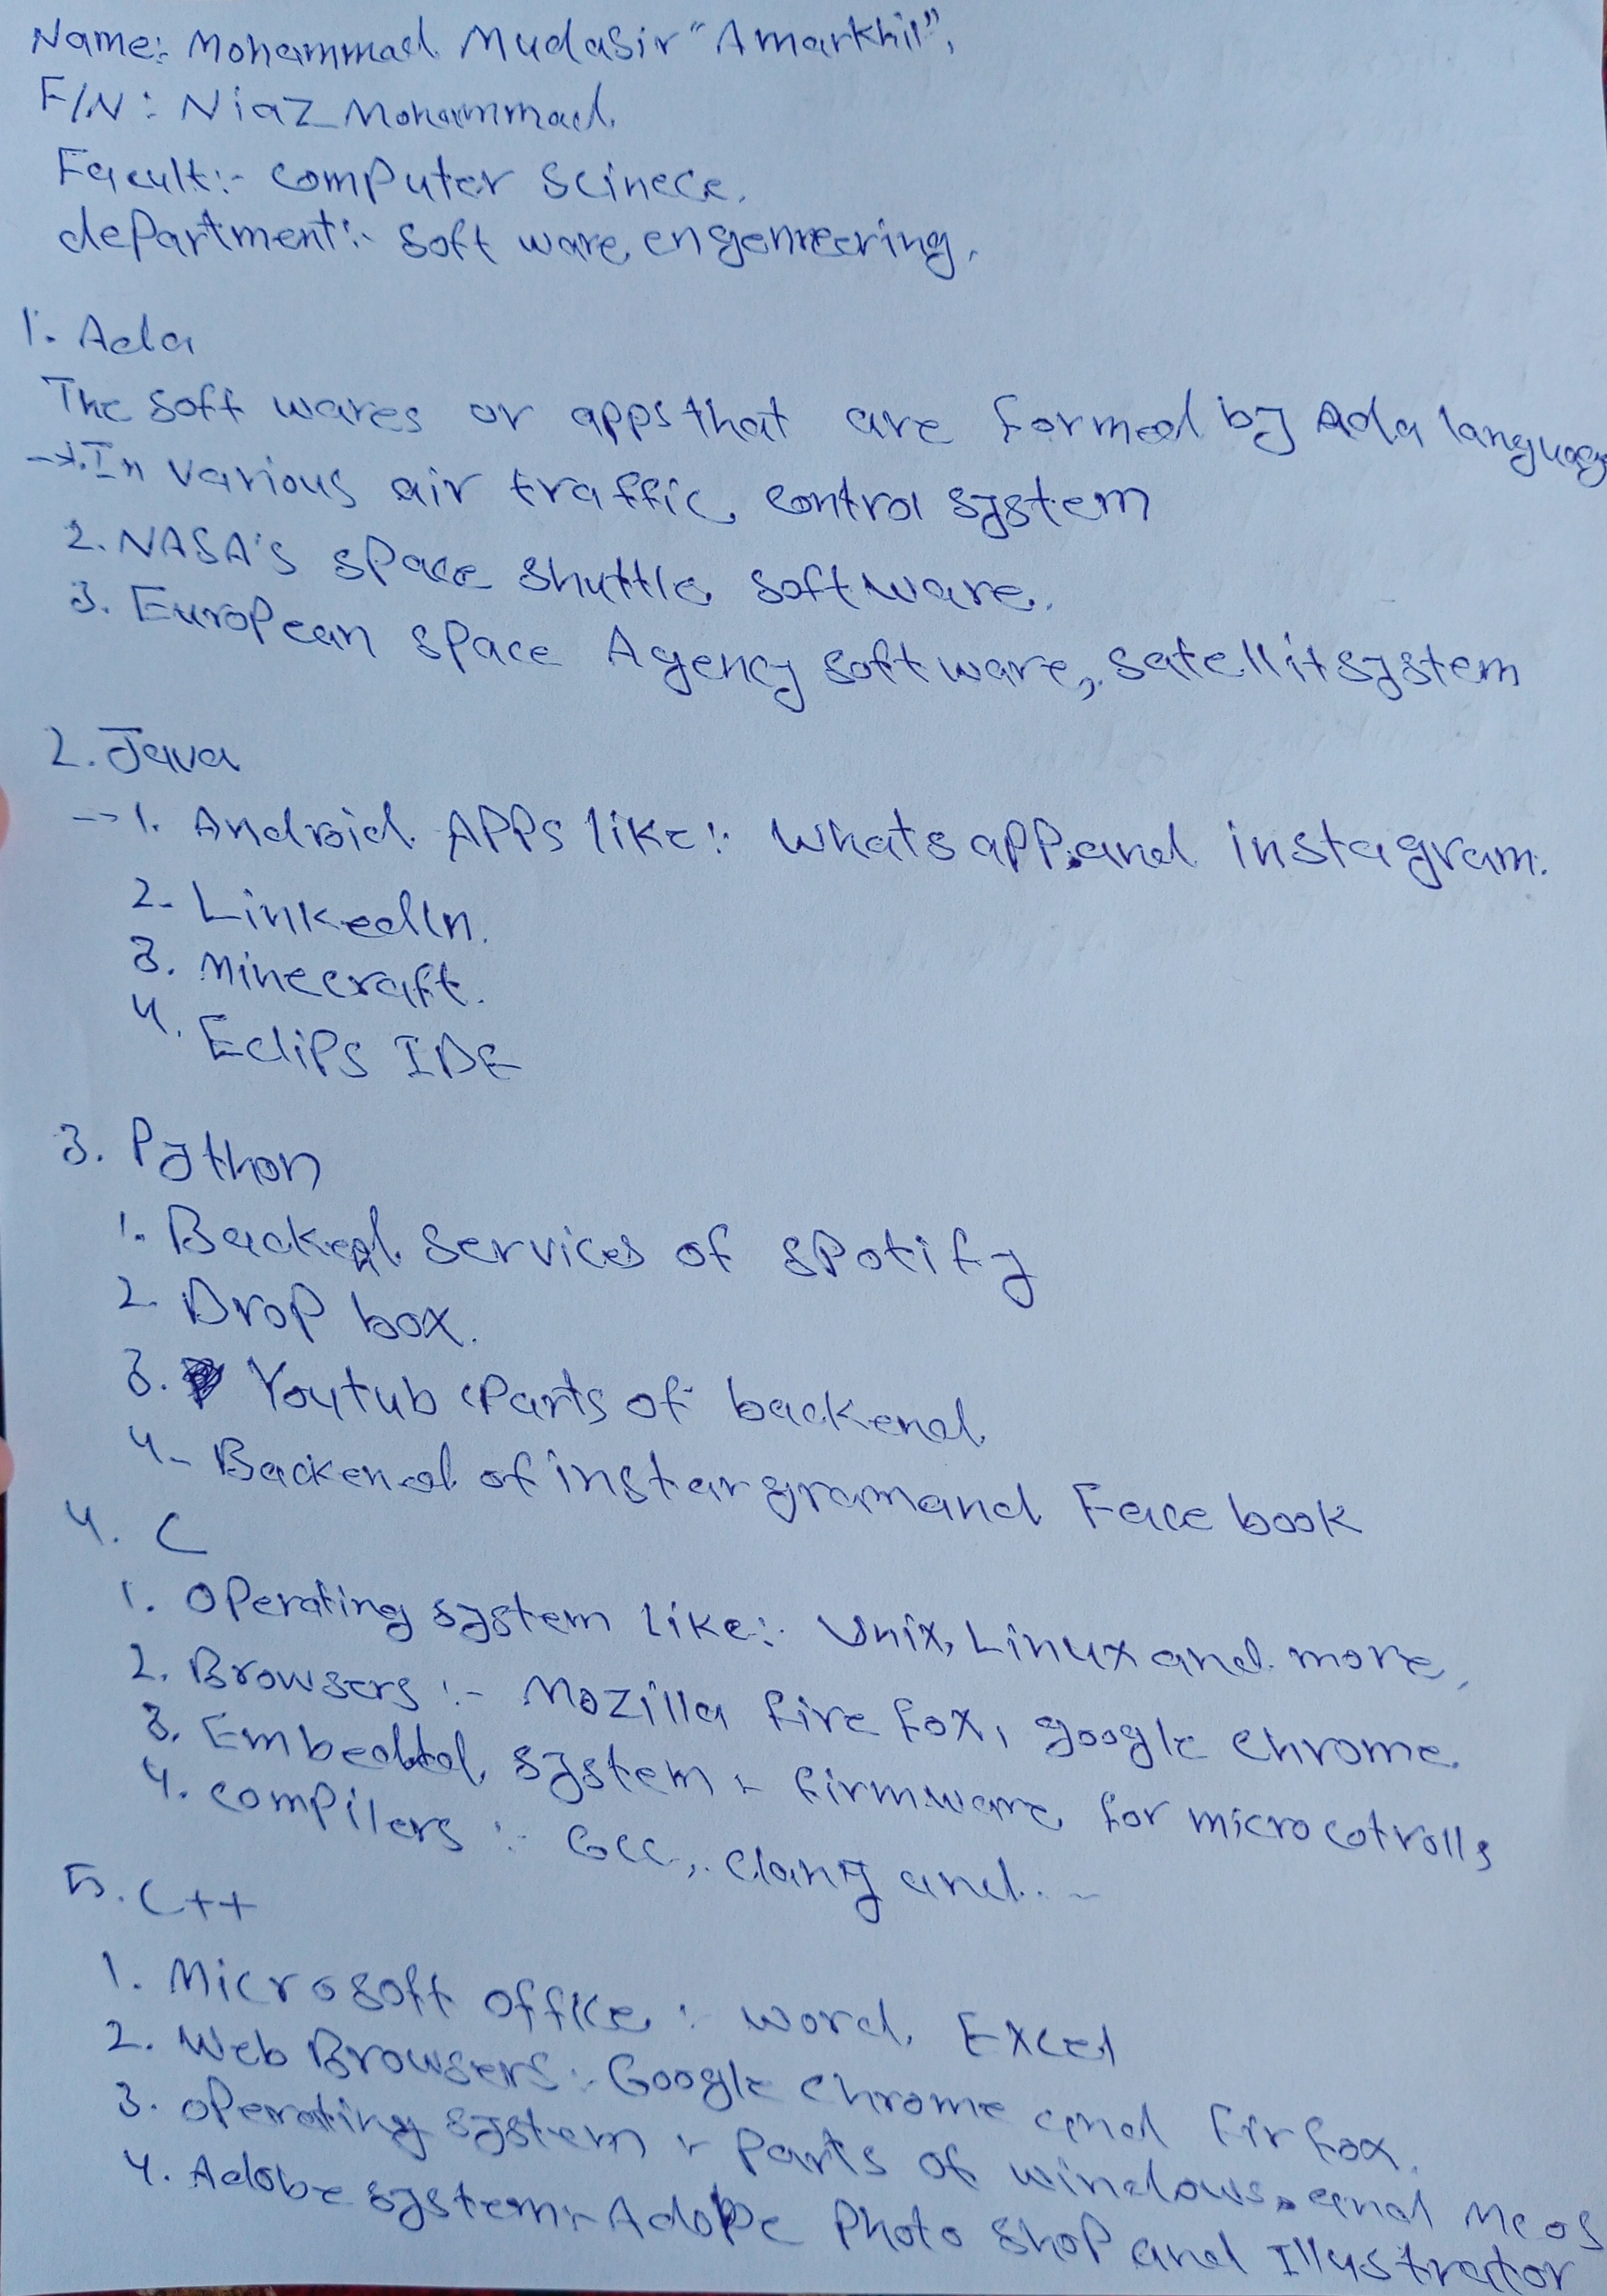 Name: Mohammad Mudasir "Amarkhil",
F/N: Niaz Mohammad.
Facult:- computer scinece.
department:- soft ware engenreering.
1. Ada
The soft wares or apps that are formed by Ada language
→1. In various air traffic control system
2. NASA's space shuttle software.
3. European space Agency software, satellit system
2. Java
→ 1. Android Apps like:- whatsapp and instagram.
2- LinkedIn.
3. minecraft.
4. Eclips IDE
3. Python
1. Backend services of spotify
2 Drop box.
3. Youtub parts of backend
4- Backend of instargram and Face book
4. C
1. Operating system like:- Unix, Linux and more,
2. Browsers:- Mozilla fire fox, google chrome.
3. Embedded system:- firmware for micro cotrolls
4. compilers:- Gcc, clang and...
5. C++
1. Microsoft office: word, Excel
2. Web Browsers:- Google chrome and firfox.
3. operating system:- Parts of windows and Mcos
4. Adobe system:- Adobe Photo shop and Illustrator